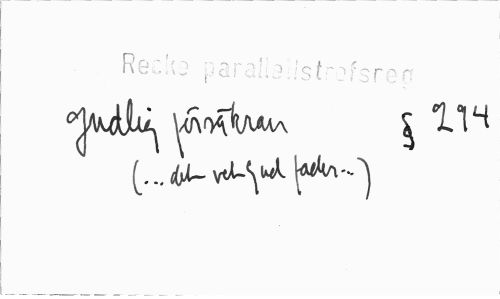 Recke parallellstrofsreg
Gudlig försäkran § 294
(... det vet Gud fader...)